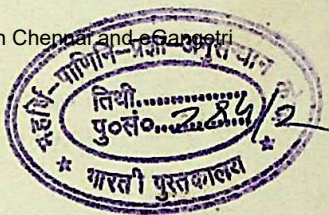 n Chennai and eGangotri
महर्षि-पाणिनि-प्रज्ञा-अमृत-धान
तिथी..............
पु०सं०...284/2
* भारती पुस्तकालय *